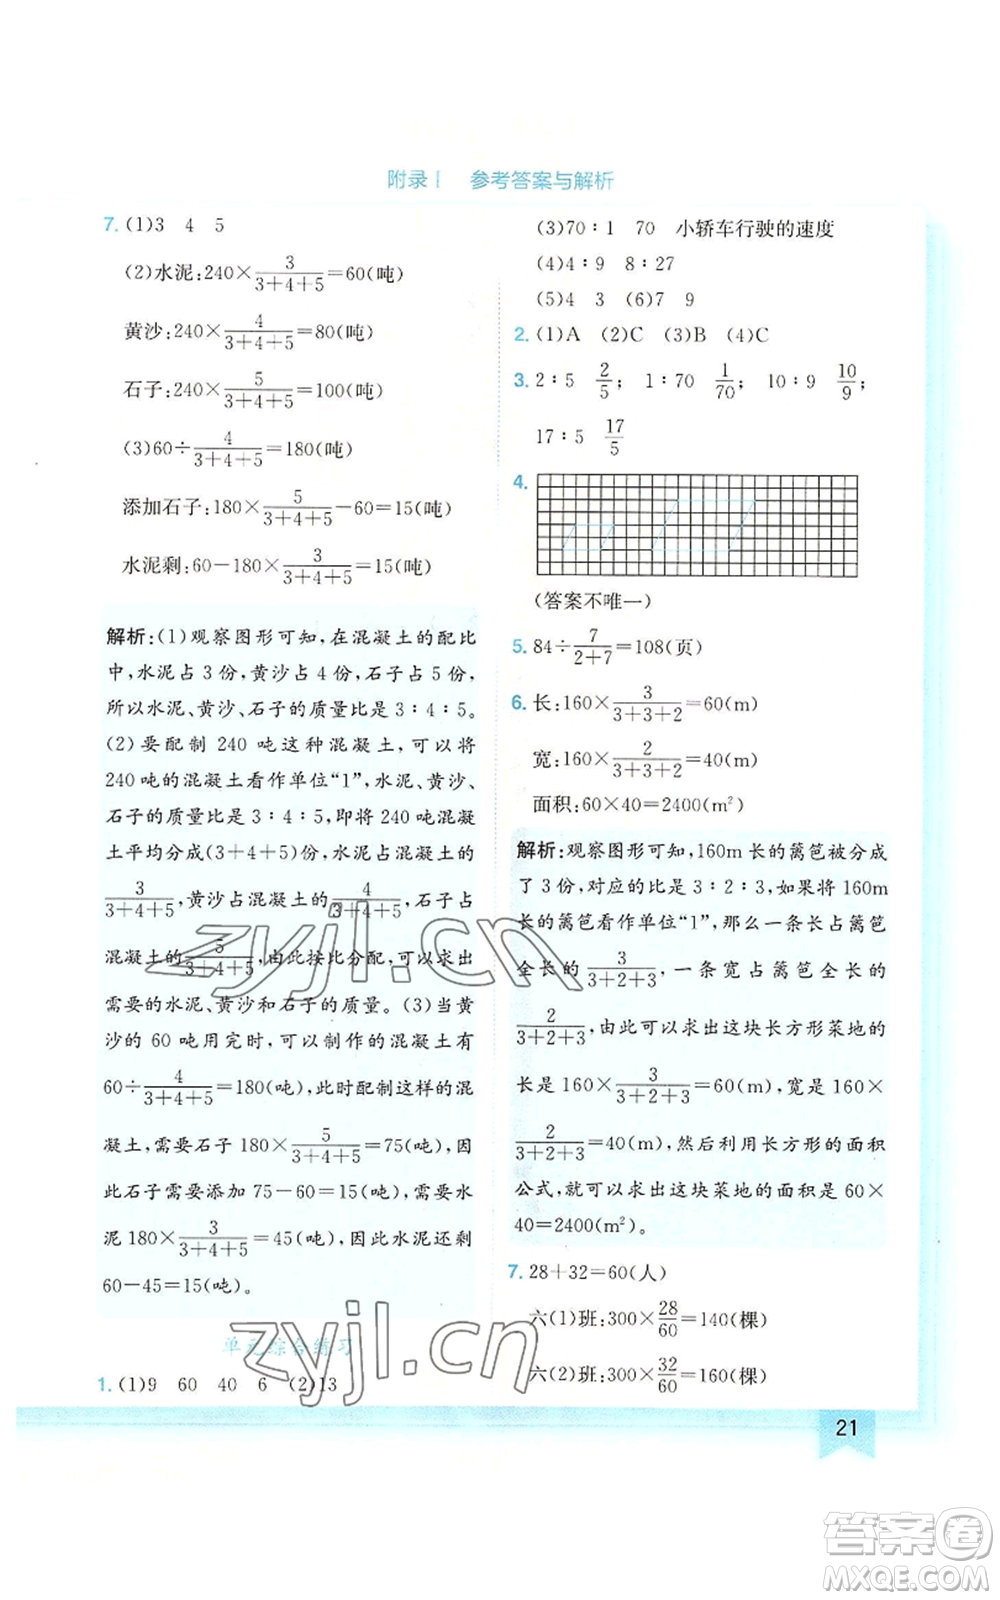 附录Ⅰ 参考答案与解析
7. (1)3 4 5
(2)水泥:240×3/(3+4+5)=60(吨)
黄沙:240×4/(3+4+5)=80(吨)
石子:240×5/(3+4+5)=100(吨)
(3)60÷4/(3+4+5)=180(吨)
添加石子:180×5/(3+4+5)-60=15(吨)
水泥剩:60-180×3/(3+4+5)=15(吨)
解析:(1)观察图形可知,在混凝土的配比
中,水泥占3份,黄沙占4份,石子占5份,
所以水泥、黄沙、石子的质量比是3∶4∶5。
(2)要配制240吨这种混凝土,可以将
240吨的混凝土看作单位“1”,水泥、黄沙、
石子的质量比是3∶4∶5,即将240吨混凝
土平均分成(3+4+5)份,水泥占混凝土的
3/(3+4+5),黄沙占混凝土的4/(3+4+5),石子占
混凝土的5/(3+4+5),由此按比分配,可以求出
需要的水泥、黄沙和石子的质量。(3)当黄
沙的60吨用完时,可以制作的混凝土有
60÷4/(3+4+5)=180(吨),此时配制这样的混
凝土,需要石子180×5/(3+4+5)=75(吨),因
此石子需要添加75-60=15(吨),需要水
泥180×3/(3+4+5)=45(吨),因此水泥还剩
60-45=15(吨)。
单元综合练习
1. (1)9 60 40 6 (2)13
(3)70∶1 70 小轿车行驶的速度
(4)4∶9 8∶27
(5)4 3 (6)7 9
2. (1)A (2)C (3)B (4)C
3. 2∶5 2/5; 1∶70 1/70; 10∶9 10/9;
17∶5 17/5
4.
(答案不唯一)
5. 84÷7/(2+7)=108(页)
6. 长:160×3/(3+3+2)=60(m)
宽:160×2/(3+3+2)=40(m)
面积:60×40=2400(m²)
解析:观察图形可知,160m长的篱笆被分成
了3份,对应的比是3∶2∶3,如果将160m
长的篱笆看作单位“1”,那么一条长占篱笆
全长的3/(3+2+3),一条宽占篱笆全长的
2/(3+2+3),由此可以求出这块长方形菜地的
长是160×3/(3+2+3)=60(m),宽是160×
2/(3+2+3)=40(m),然后利用长方形的面积
公式,就可以求出这块菜地的面积是60×
40=2400(m²)。
7. 28+32=60(人)
六(1)班:300×28/60=140(棵)
六(2)班:300×32/60=160(棵)
21
zyjl.cn
zyjl.cn
答案卷
MXQE.COM